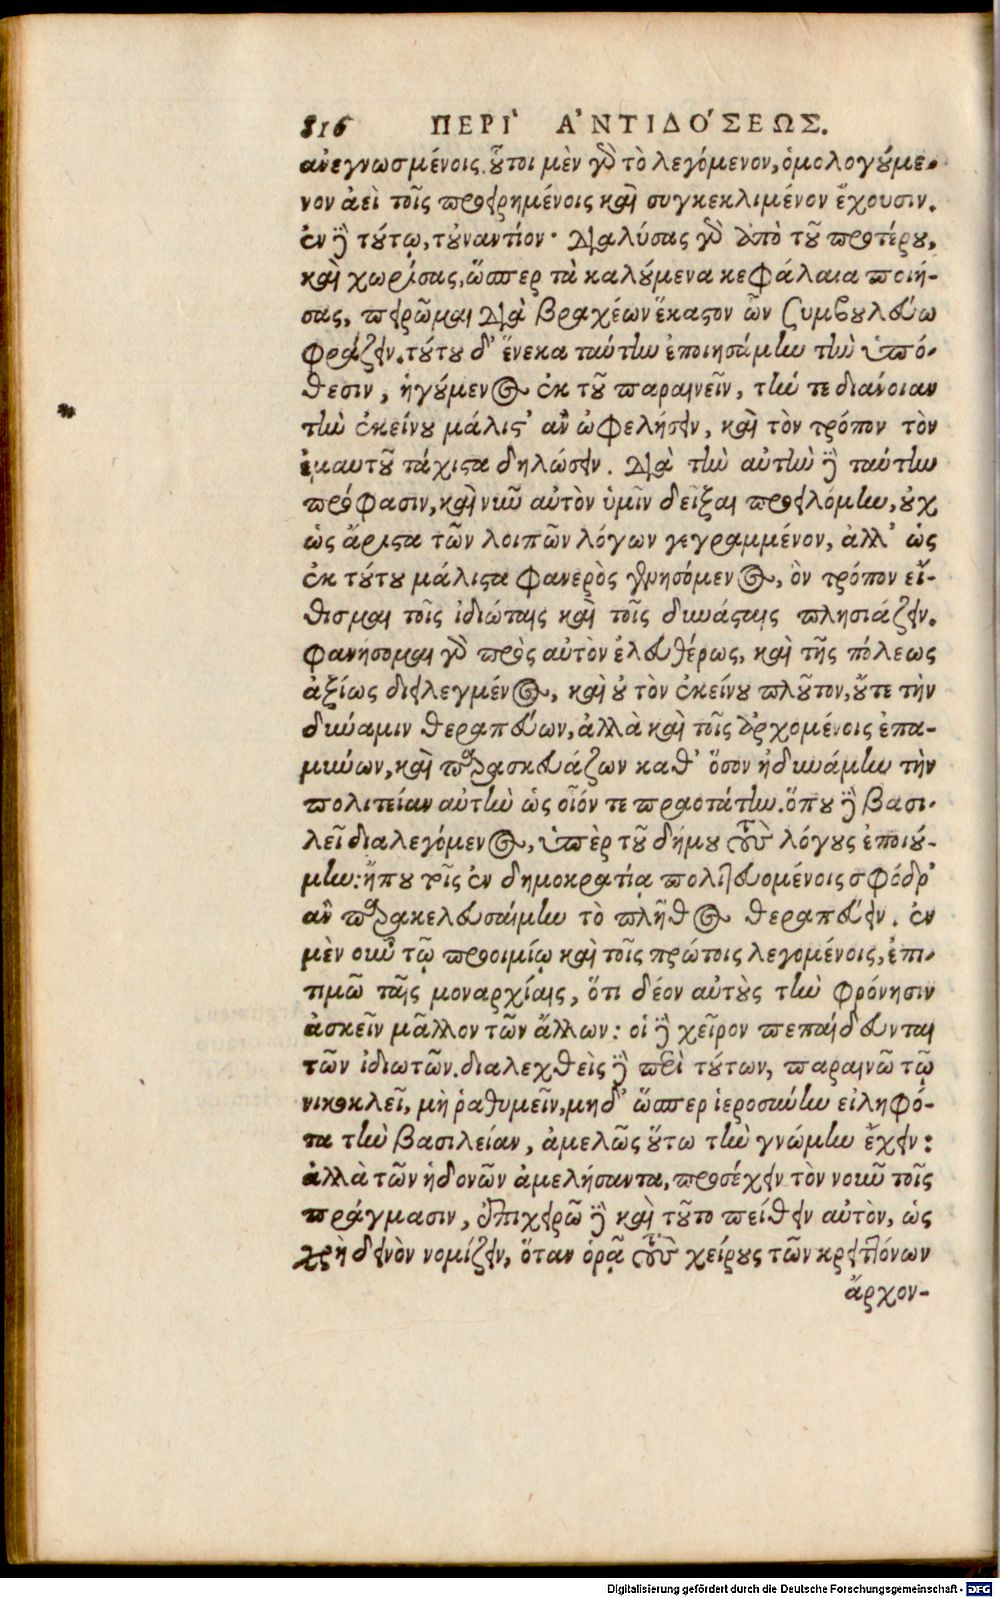 816 ΠΕΡΙ` Α'ΝΤΙΔΟ'ΣΕΩΣ.
ανεγνωσμένοις. οὗτοι μὲν γὸ τὸ λεγόμενον, ὁμολογούμε-
νον ἀεὶ τοῖς προειρημένοις καὶ συγκεκλιμένον ἔχουσιν.
ἐν ἢ τούτῳ, τοὐναντίον· διαλύσας γὸ ἀπὸ τοῦ προτέρου,
καὶ χωρίσας, ὥσπερ τὰ καλούμενα κεφάλαια ποιή-
σας, πειρῶμαι διὰ βραχέων ἕκαστον ὧν συμβουλεύω
φράζειν. τούτου δ' ἕνεκα ταύτην ἐποιησάμην τὴν ὑπό-
θεσιν, ἡγούμενος ἐκ τοῦ παραινεῖν, τήν τε διάνοιαν
τὴν ἐκείνου μάλιστ' ἂν ὠφελήσειν, καὶ τὸν τρόπον τὸν
ἐμαυτοῦ τάχιστα δηλώσειν. διὰ τὴν αὐτὴν δὲ ταύτην
πρόφασιν, καὶ νῦν αὐτὸν ὑμῖν δεῖξαι προειλόμην, οὐχ
ὡς ἄριστα τῶν λοιπῶν λόγων γεγραμμένον, ἀλλ' ὡς
ἐκ τούτου μάλιστα φανερὸς γενησόμενος, ὃν τρόπον εἴ-
θισμαι τοῖς ἰδιώταις καὶ τοῖς δυνάσταις πλησιάζειν.
φανήσομαι γὸ πρὸς αὐτὸν ἐλευθέρως, καὶ τῆς πόλεως
ἀξίως διειλεγμένος, καὶ οὐ τὸν ἐκείνου πλοῦτον, οὔτε τὴν
δύναμιν θεραπεύων, ἀλλὰ καὶ τοῖς ἀρχομένοις ἐπα-
μύνων, καὶ παρασκευάζων καθ' ὅσον ἠδυνάμην τὴν
πολιτείαν αὐτὴν ὡς οἷόν τε πραοτάτην. ὅπου δὲ βασι-
λεῖ διαλεγόμενος, ὑπὲρ τοῦ δήμου τοὺς λόγους ἐποιού-
μην: ἤπου τοῖς ἐν δημοκρατίᾳ πολιτευομένοις σφόδρ'
ἂν παρακελευσαίμην τὸ πλῆθος θεραπεύειν. ἐν
μὲν οὖν τῷ προοιμίῳ καὶ τοῖς πρώτοις λεγομένοις, ἐπι-
τιμῶ ταῖς μοναρχίαις, ὅτι δέον αὐτοὺς τὴν φρόνησιν
ἀσκεῖν μᾶλλον τῶν ἄλλων: οἱ δὲ χεῖρον πεπαίδευνται
τῶν ἰδιωτῶν. διαλεχθεὶς δὲ περὶ τούτων, παραινῶ τῷ
νικοκλεῖ, μὴ ῥαθυμεῖν, μηδ' ὥσπερ ἱεροσύνην εἰληφό-
τα τὴν βασιλείαν, ἀμελῶς οὕτω τὴν γνώμην ἔχειν:
ἀλλὰ τῶν ἡδονῶν ἀμελήσαντα, προσέχειν τὸν νοῦν τοῖς
πράγμασιν, ἐπιχειρῶ δὲ καὶ τοῦτο πείθειν αὐτὸν, ὡς
χρὴ δεινὸν νομίζειν, ὅταν ὁρᾷ τοὺς χείρους τῶν κρειττόνων
ἄρχον-
Digitalisierung gefördert durch die Deutsche Forschungsgemeinschaft - DFG